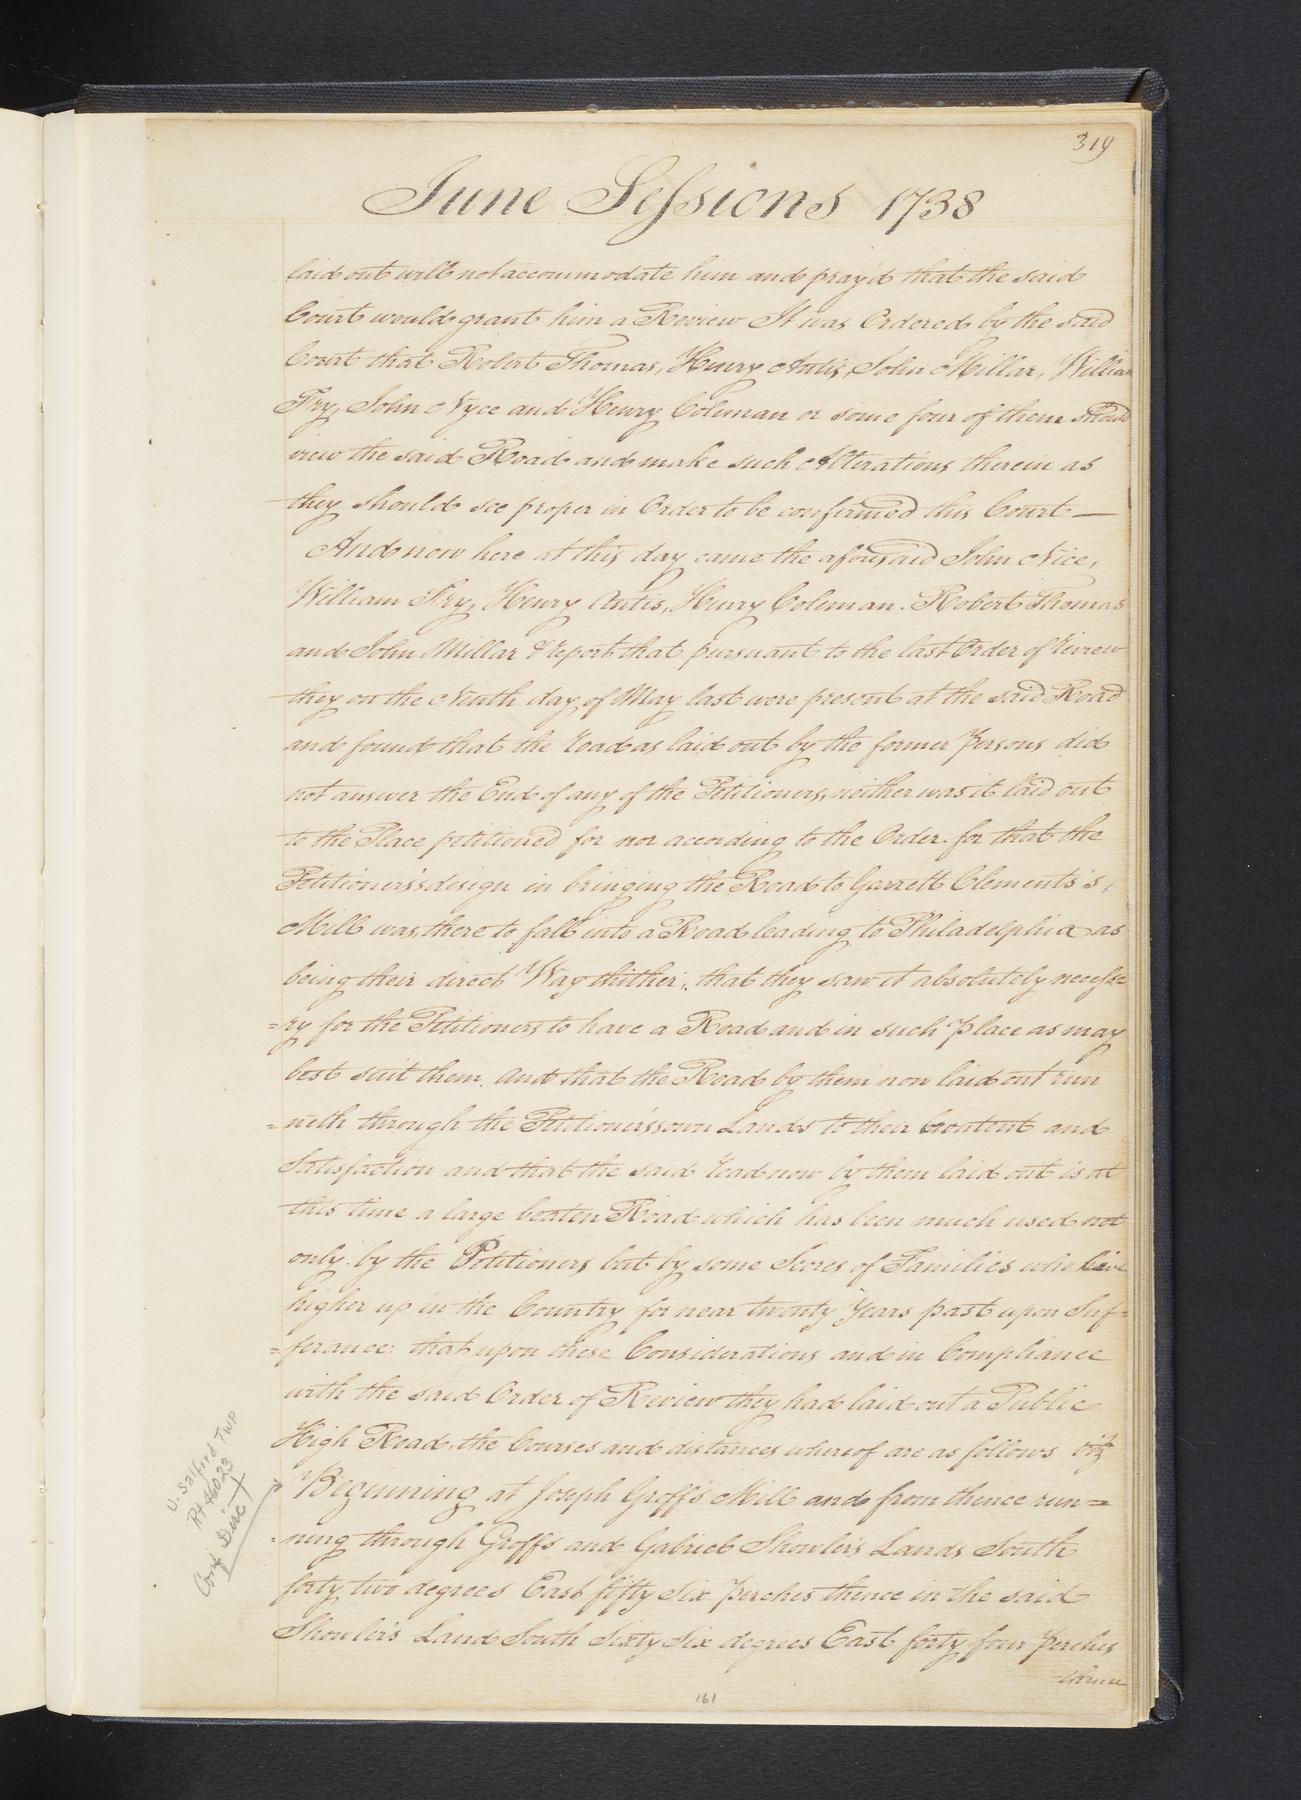 319
June Sessions 1738
laid out will not accommodate him and pray'd that the said
Court would grant him a Review It was Ordered by the said
Court that Robert Thomas, Henry Antis, John Millar, William
Fry, John Nyce and Henry Coleman or some four of them should
view the said Road and make such Alterations therein as
they should see proper in Order to be confirmed this Court —
And now here at this day came the aforesaid John Nice,
William Fry, Henry Antis, Henry Coleman. Robert Thomas
and John Millar & report that pursuant to the last Order of review
they on the Ninth day of May last were present at the said Road
and found that the road as laid out by the former Persons did
not answer the End of any of the Petitioners, neither was it laid out
to the Place petitioned for nor according to the Order. for that the
Petitioners's design in bringing the Road to Garrett Clements's,
Mill was, there to fall into a Road leading to Philadelphia as
being their direct Way thither; that they saw it absolutely necessa=
=ry for the Petitioners to have a Road and in such Place as may
best suit them. And that the Road by them now laid out run
=neth through the Petitioners's own Lands to their Content and
Satisfaction and that the said road now by them laid out is at
this time a large beaten Road which has been much used not
only by the Petitioners but by some Scores of Families who live
higher up in the Country for near twenty Years past upon Suf=
=ferance: that upon these Considerations and in Compliance
with the said Order of Review they had laid out a Public
High Road, the Courses and distances whereof are as follows viz
Beginning at Joseph Groff's Mill and from thence run=
=ning through Groff's and Gabriel Showler's Lands South
forty two degrees East fifty Six Perches thence in the said
Showler's Land South Sixty Six degrees East forty four Perches
thence
U. Salford Twp
Rt 46023
Conf Direct
161